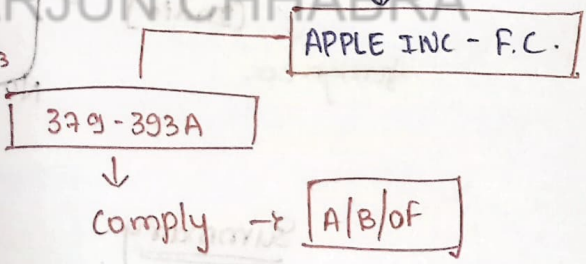 ERJUN CHHABRA
3
APPLE INC - F.C.
379-393A
↓
comply → A/B/OF